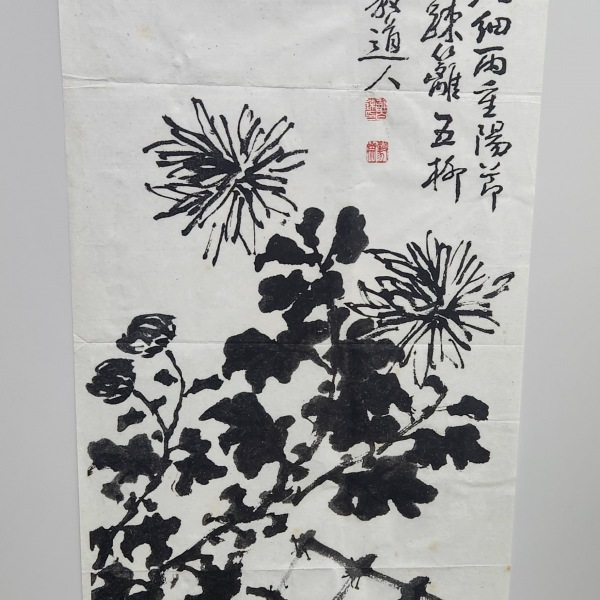 細雨重陽節
疎籬五柳
散道人